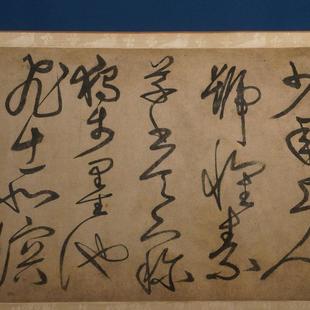 少年上人
號懷素
草書天下稱
獨步墨池
飛出北溟